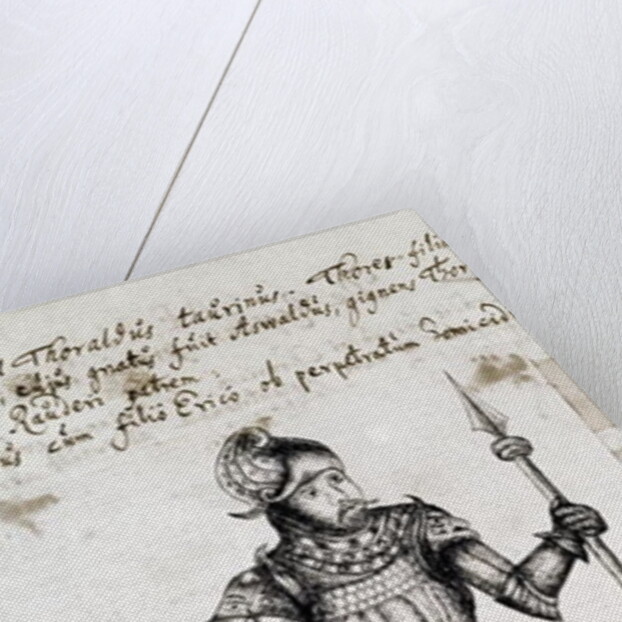 Thoraldůs taůrinůs. Thores filiu
ejůs gnatůs fůit Aswaldůs, gignens Thor
Raůderi patrem.
ůs cům filio Erico ob perpetratům homicid